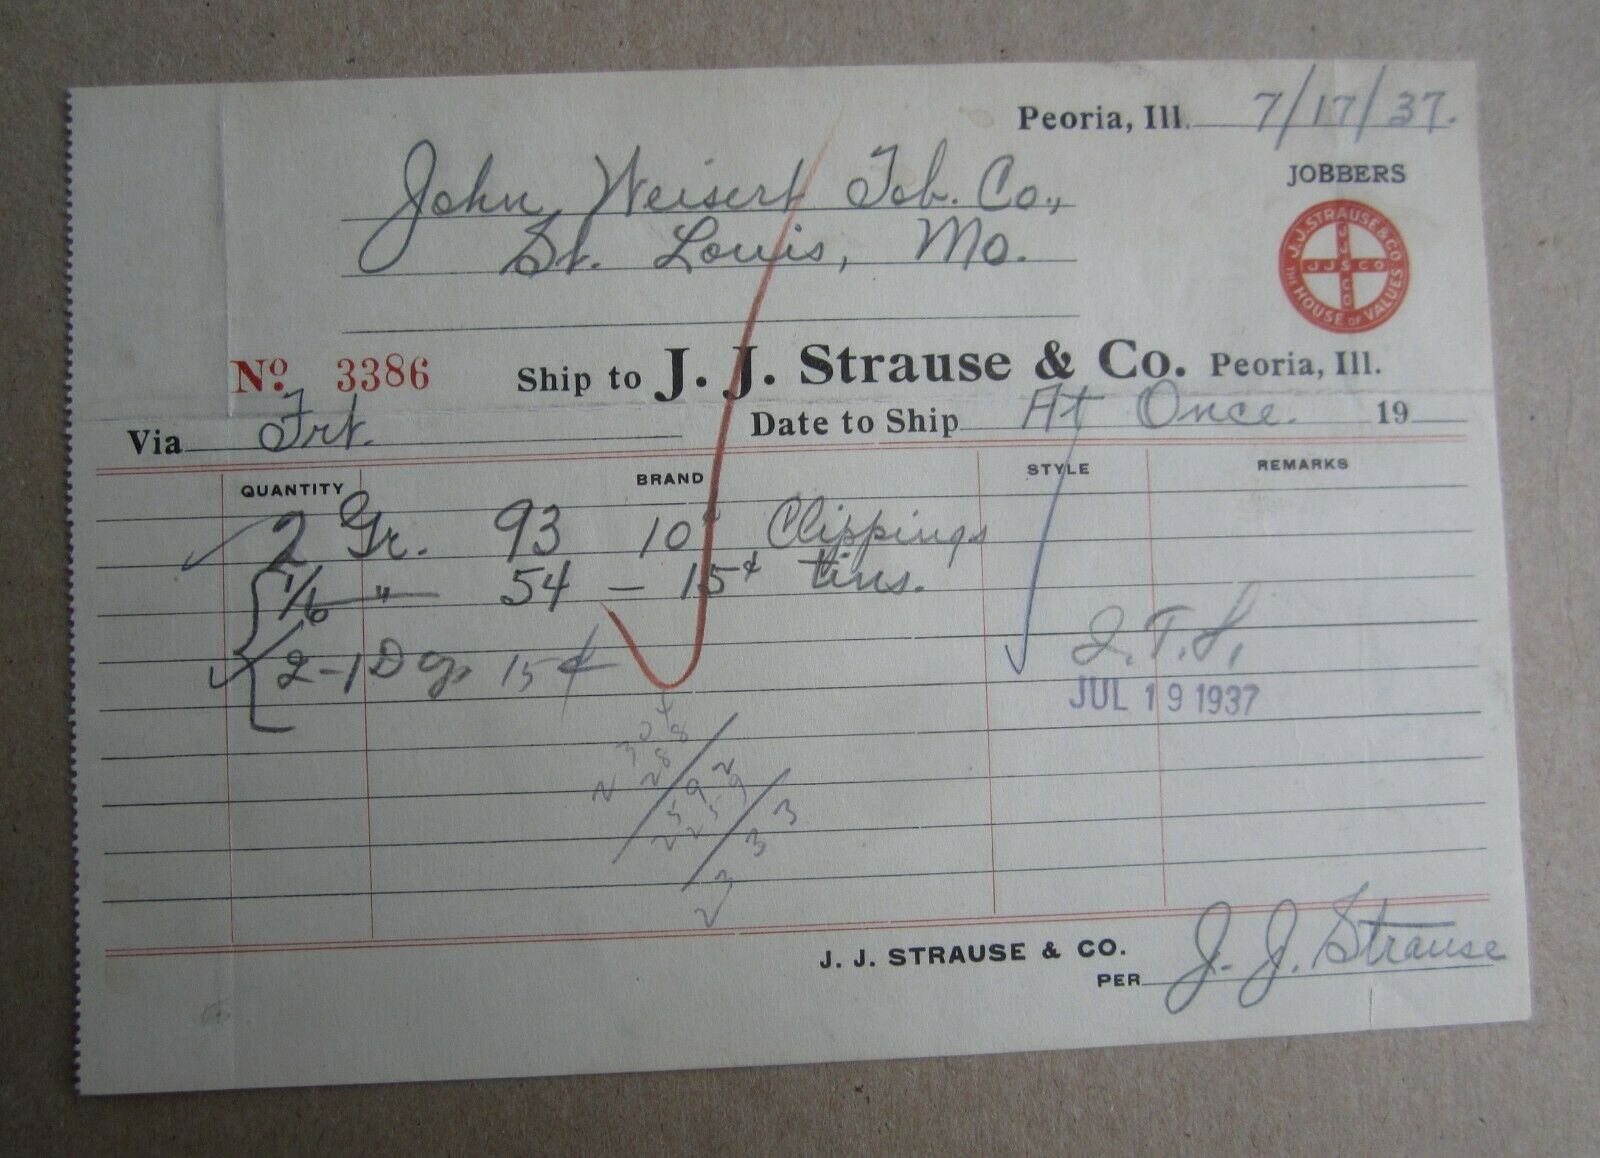 Peoria, Ill. 7/17/37.
John Weisert Tob. Co.,
St. Louis, Mo.
JOBBERS
J. J. STRAUSE & CO.
JJSCO
JJSCO
THE HOUSE OF VALUES
No. 3386 Ship to J. J. Strause & Co. Peoria, Ill.
Via Frt. Date to Ship At Once. 19
QUANTITY BRAND STYLE REMARKS
2 Gr. 93 10¢ Clippings
1/6 " 54 - 15¢ tins.
2-1 Dz, 15¢
J.T.S,
JUL 19 1937
J. J. STRAUSE & CO.
PER J. J. Strause